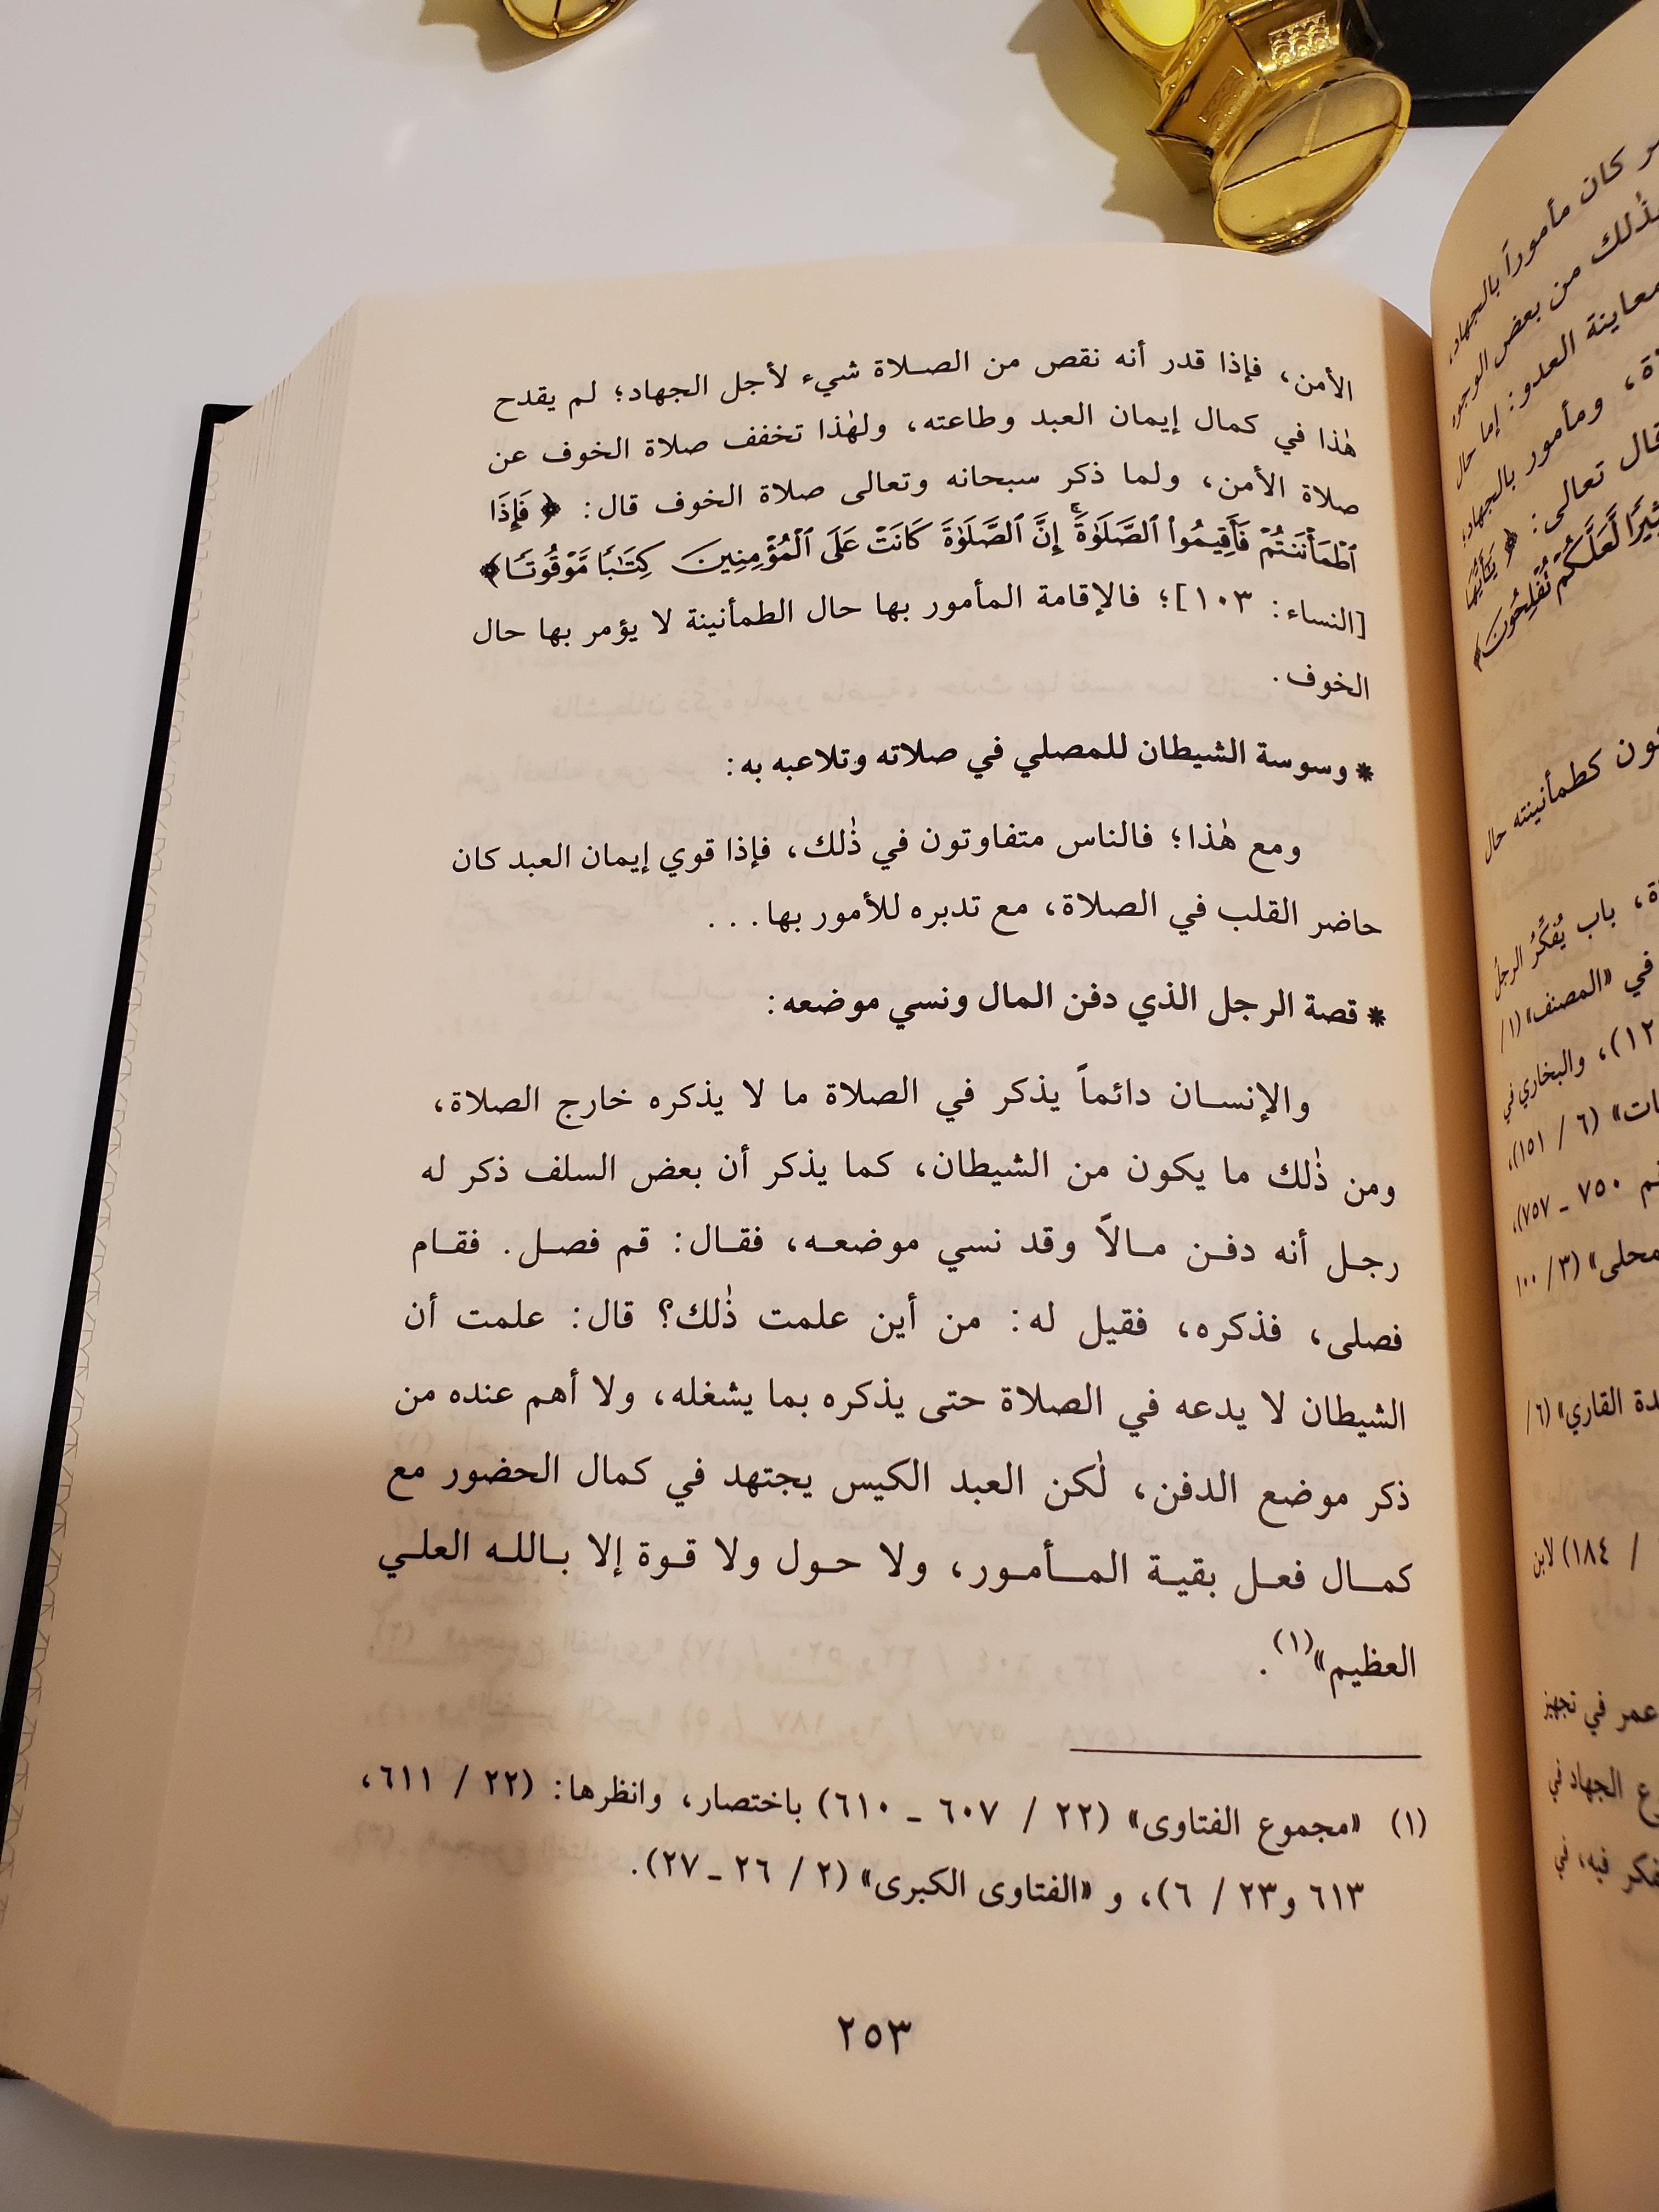 الأمن، فإذا قدر أنه نقص من الصلاة شيء لأجل الجهاد؛ لم يقدح
هٰذا في كمال إيمان العبد وطاعته، ولهٰذا تخفف صلاة الخوف عن
صلاة الأمن، ولما ذكر سبحانه وتعالى صلاة الخوف قال: ﴿فَإِذَا
ٱطْمَأْنَنتُمْ فَأَقِيمُوا۟ ٱلصَّلَوٰةَ ۚ إِنَّ ٱلصَّلَوٰةَ كَانَتْ عَلَى ٱلْمُؤْمِنِينَ كِتَٰبًا مَّوْقُوتًا﴾
[النساء: ١٠٣]؛ فالإقامة المأمور بها حال الطمأنينة لا يؤمر بها حال
الخوف.
* وسوسة الشيطان للمصلي في صلاته وتلاعبه به:
ومع هٰذا؛ فالناس متفاوتون في ذٰلك، فإذا قوي إيمان العبد كان
حاضر القلب في الصلاة، مع تدبره للأمور بها...
* قصة الرجل الذي دفن المال ونسي موضعه:
والإنسان دائماً يذكر في الصلاة ما لا يذكره خارج الصلاة،
ومن ذٰلك ما يكون من الشيطان، كما يذكر أن بعض السلف ذكر له
رجل أنه دفن مالاً وقد نسي موضعه، فقال: قم فصل. فقام
فصلى، فذكره، فقيل له: من أين علمت ذٰلك؟ قال: علمت أن
الشيطان لا يدعه في الصلاة حتى يذكره بما يشغله، ولا أهم عنده من
ذكر موضع الدفن، لٰكن العبد الكيس يجتهد في كمال الحضور مع
كمال فعل بقية المأمور، ولا حول ولا قوة إلا بالله العلي
العظيم»(١).
(١) «مجموع الفتاوى» (٢٢ / ٦٠٧ ـ ٦١٠) باختصار، وانظرها: (٢٢ / ٦١١،
٦١٣ و٢٣ / ٦)، و «الفتاوى الكبرى» (٢ / ٢٦ ـ ٢٧).
٢٥٣
كان مأموراً بالجهاد،
من بعض الوجوه
معاينة العدو: إما حال
ومأمور بالجهاد،
قال تعالى: ﴿يَٰٓأَيُّهَا
لَّعَلَّكُمْ تُفْلِحُونَ﴾
كطمأنينته حال
باب يُفكِرُ الرجلُ
في «المصنف» (١/
١٢)، والبخاري في
(٦ / ١٥١)،
٧٥٠ ـ ٧٥٧)،
(٣/ ١٠٠
القاري» (٦/
/ ١٨٤) لابن
عمر في تجهيز
الجهاد في
فيه، في